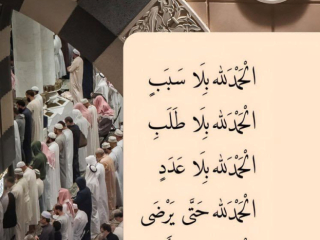 الْحَمْدُلله بِلَا سَبَبٍ
الْحَمْدُلله بِلَا طَلَبٍ
الْحَمْدُلله بِلَا عَدَدٍ
الْحَمْدُلله حَتَّى يَرْضَى